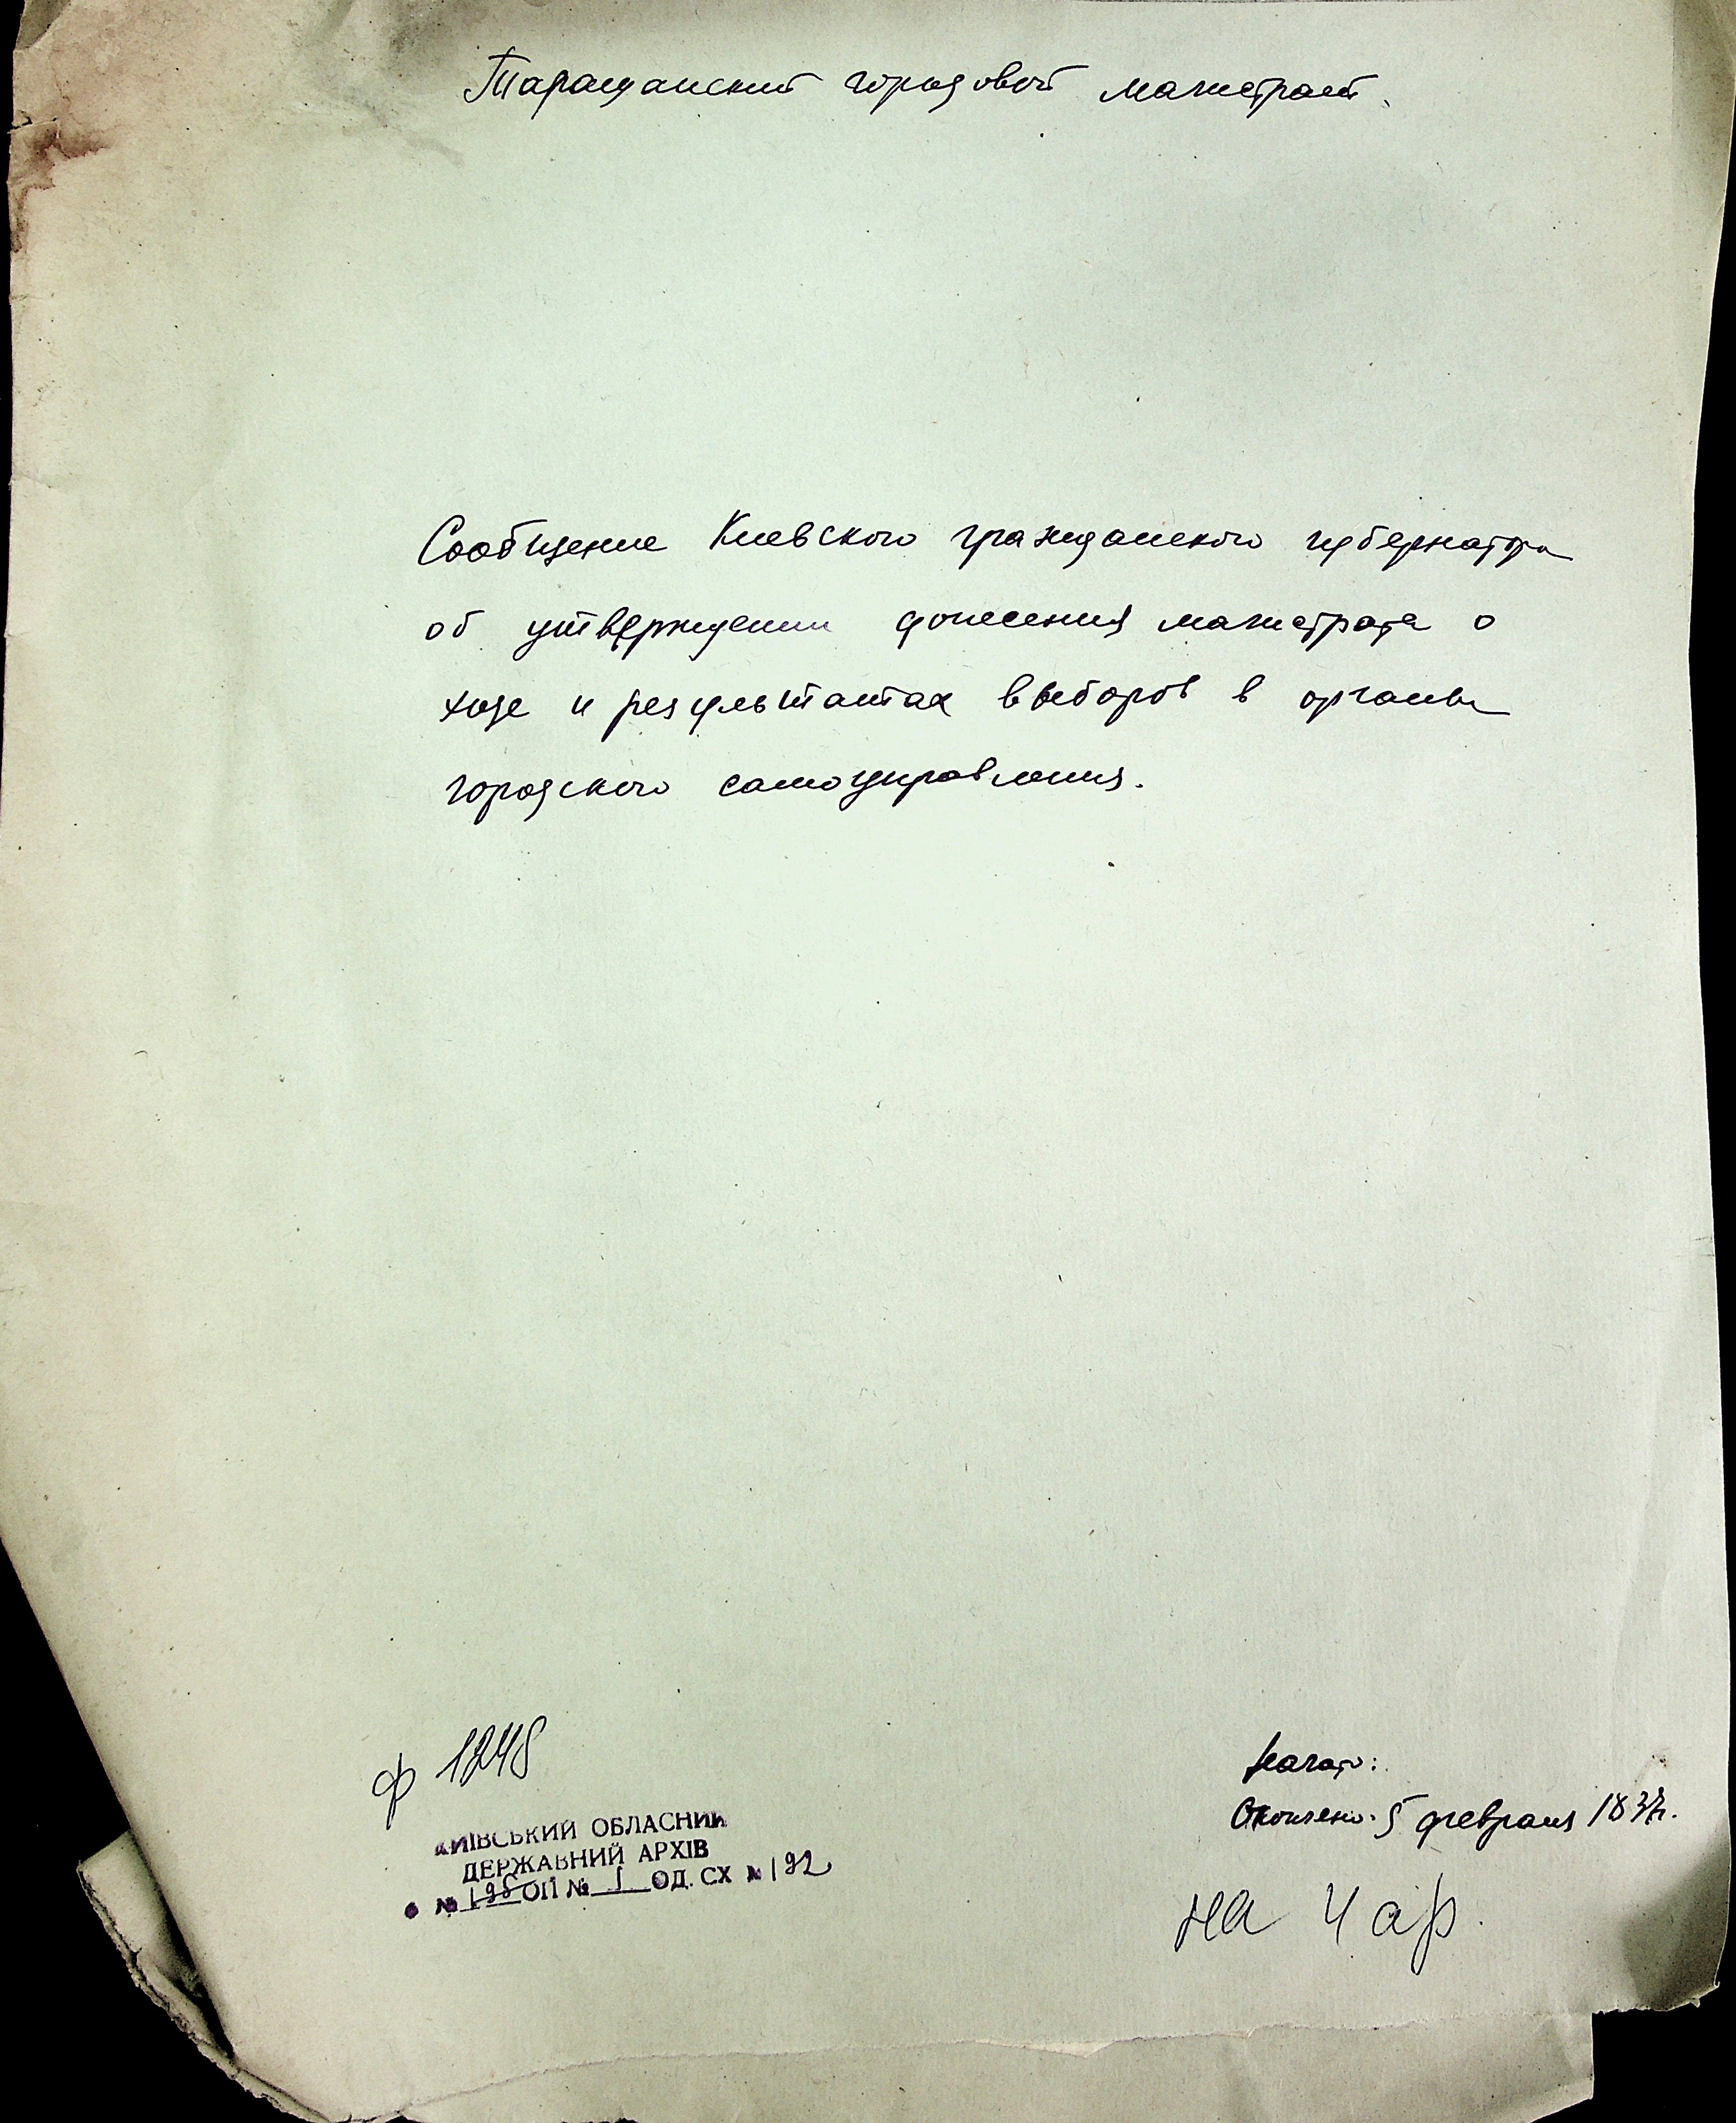 Таращанский городовой магистрат.
Сообщение Киевского гражданского губернатора
об утверждении донесения магистрата о
ходе и результатах выборов в органы
городского самоуправления.
ф 1248
КИЇВСЬКИЙ ОБЛАСНИЙ
ДЕРЖАВНИЙ АРХІВ
№ 195 ОП № 1 ОД. СХ № 192
Начато:
Окончено: 5 февраля
на 4 ар.